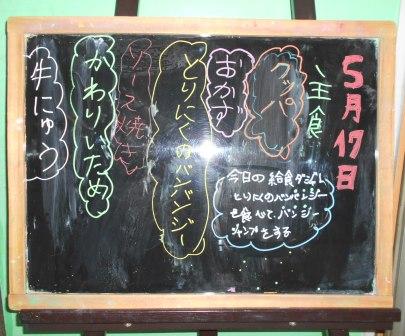 5月17日
主食
クッパ
おかず
とりにくのバンバンジー
かわりいため
牛にゅう
今日の給食ダジャレ
とりにくのバンバンジー
を食べて、バンジー
ジャンプをする